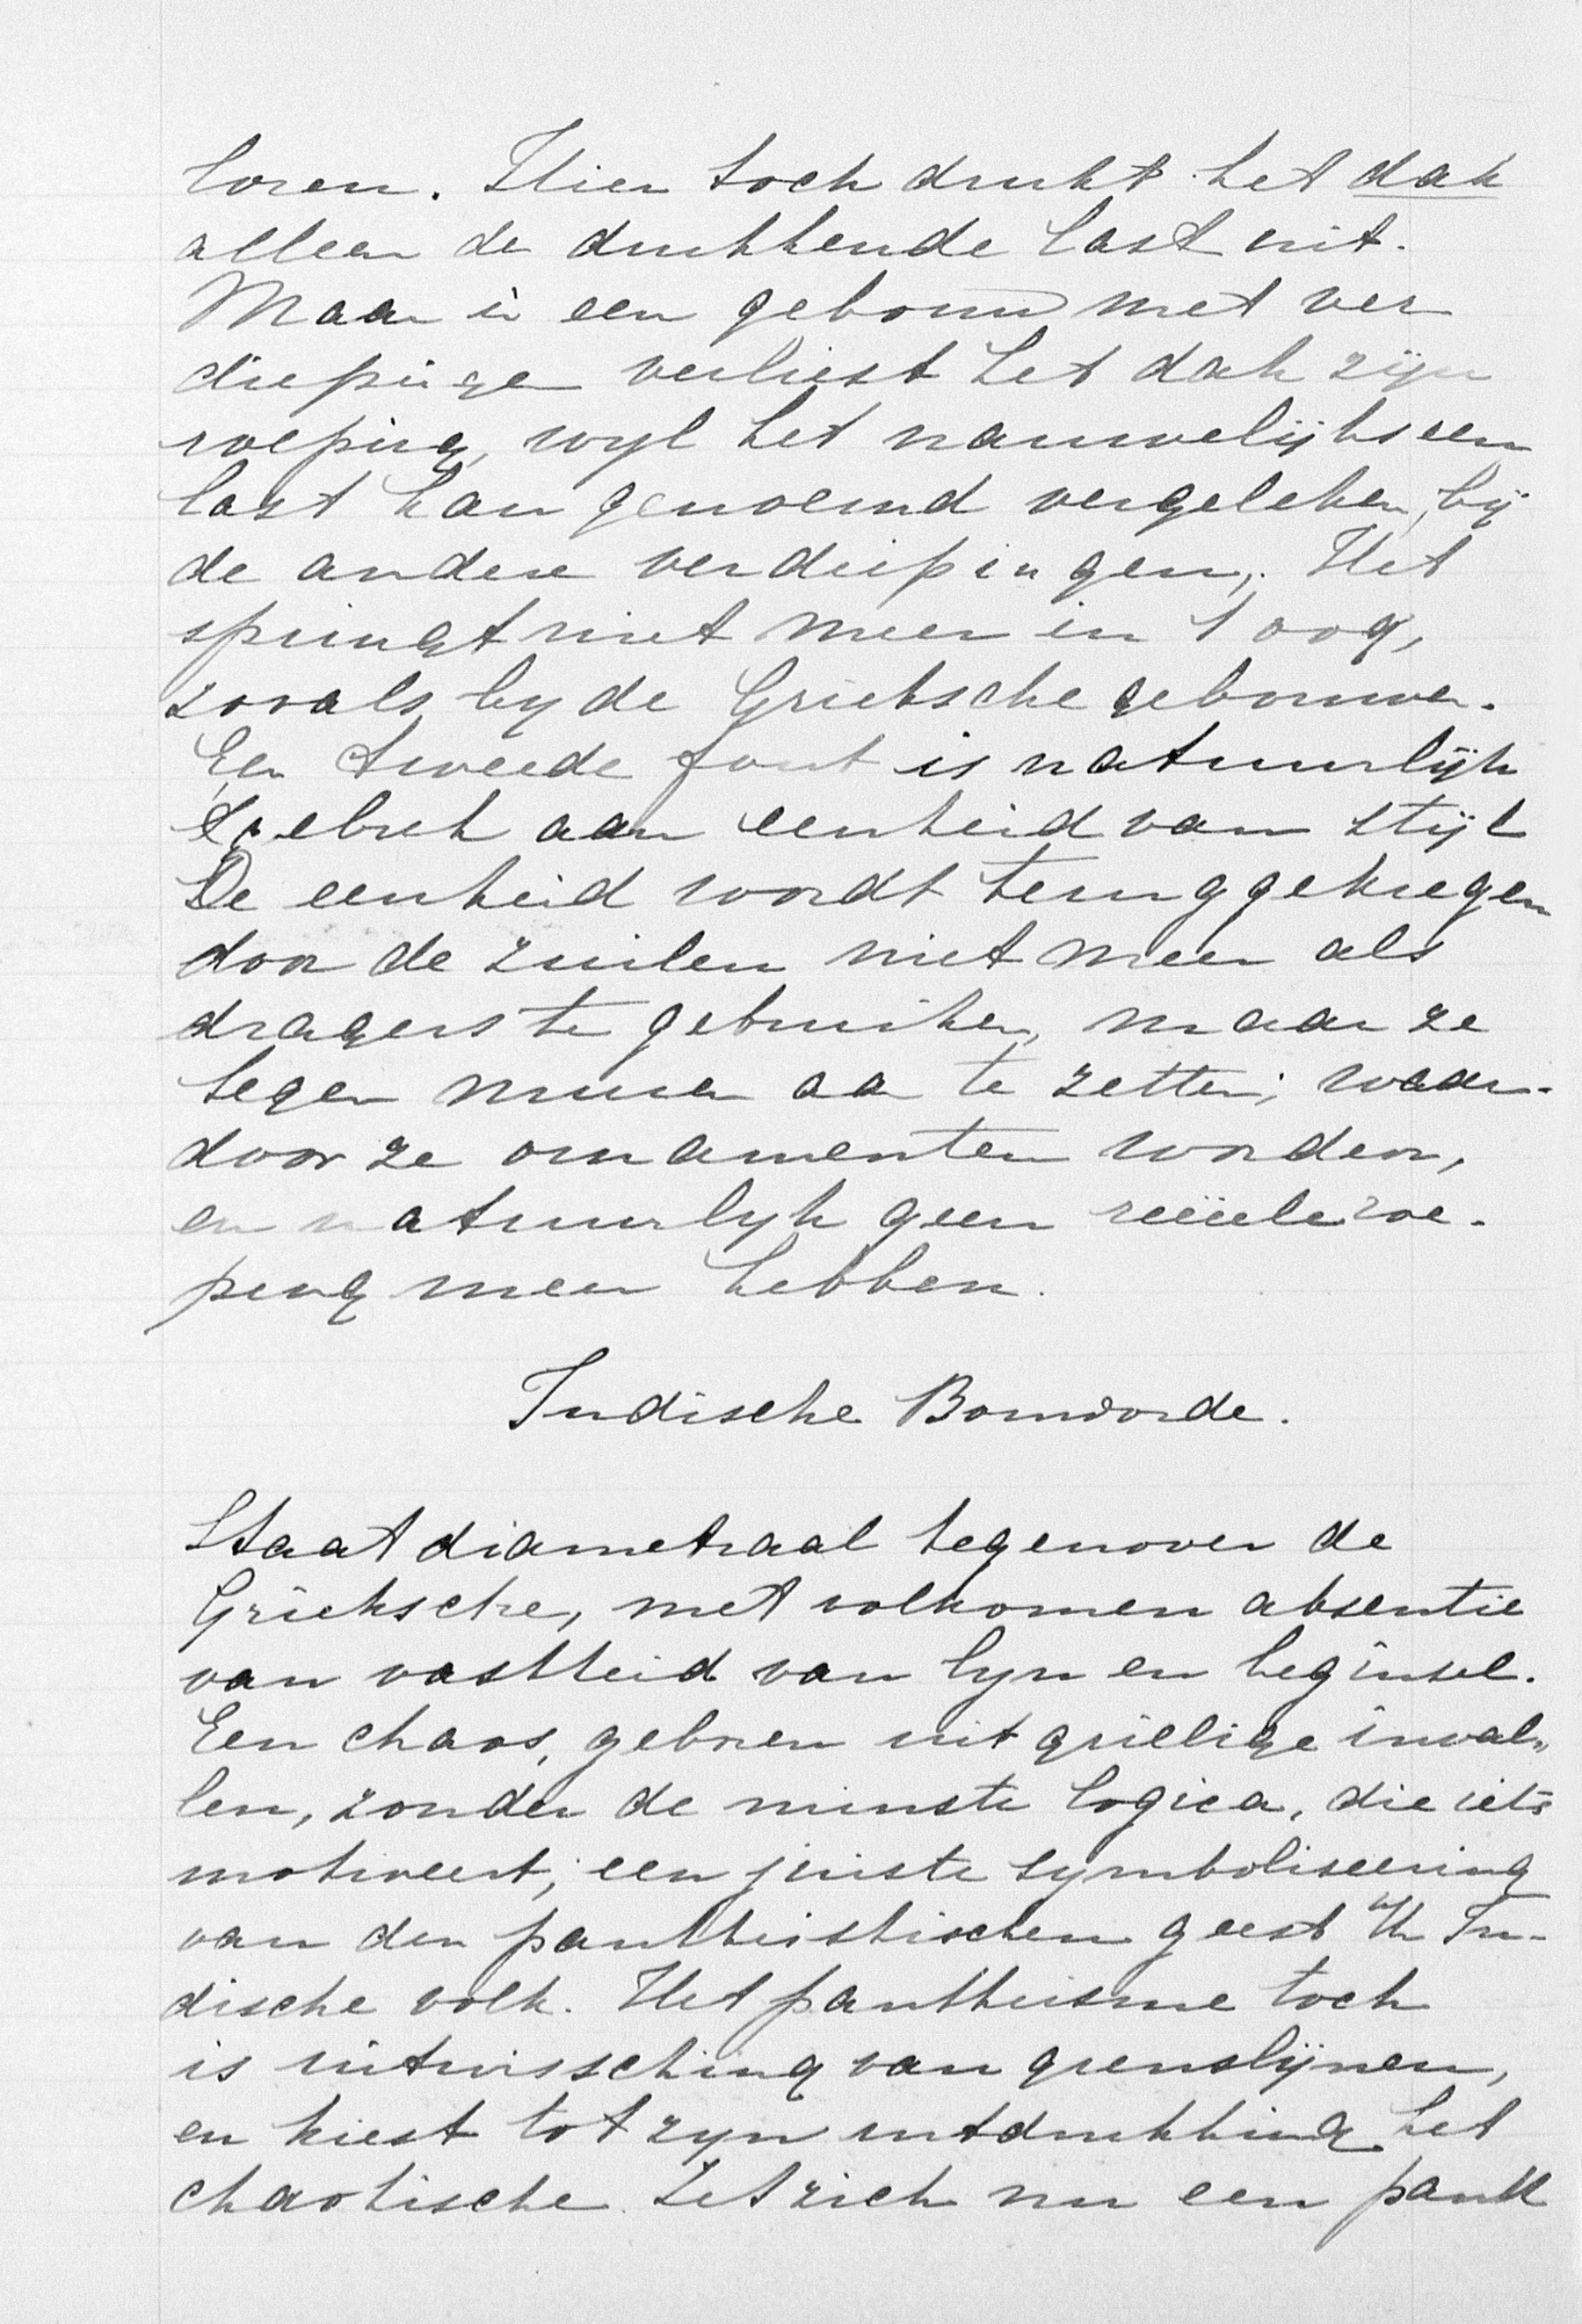 loren. Hier toch drukt het dak
alleen de drukkende last uit.
Maar in een gebouw met ver
diepingen verliest het dak zijn
roeping, wyl het nauwelijks een
last kan genoemd vergeleken bij
de andere verdiepingen. Het
springt niet meer in 't oog,
zooals by de Grieksche gebouwen.
Een tweede fout is natuurlijk
gebrek aan eenheid van stijl
De eenheid wordt teruggekregen
door de zuilen niet meer als
dragers te gebruiken, maar ze
tegen muren aan te zetten; waar-
door ze ornamenten worden,
en natuurlyk geen reëele roe-
ping meer hebben.
Indische Bouworde.
Staat diametraal tegenover de
Grieksche, met volkomen absentie
van vastheid van lyn en beginsel.
Een chaos, geboren uit grillige inval„
len, zonder de minste logica, die iets
motiveert; een juiste symboliseering
van den pantheistischen geest v/h In-
dische volk. Het pantheisme toch
is uitwissching van grenslijnen,
en kiest tot zyn uitdrukking het
chaotische. Zet zich nu een panth